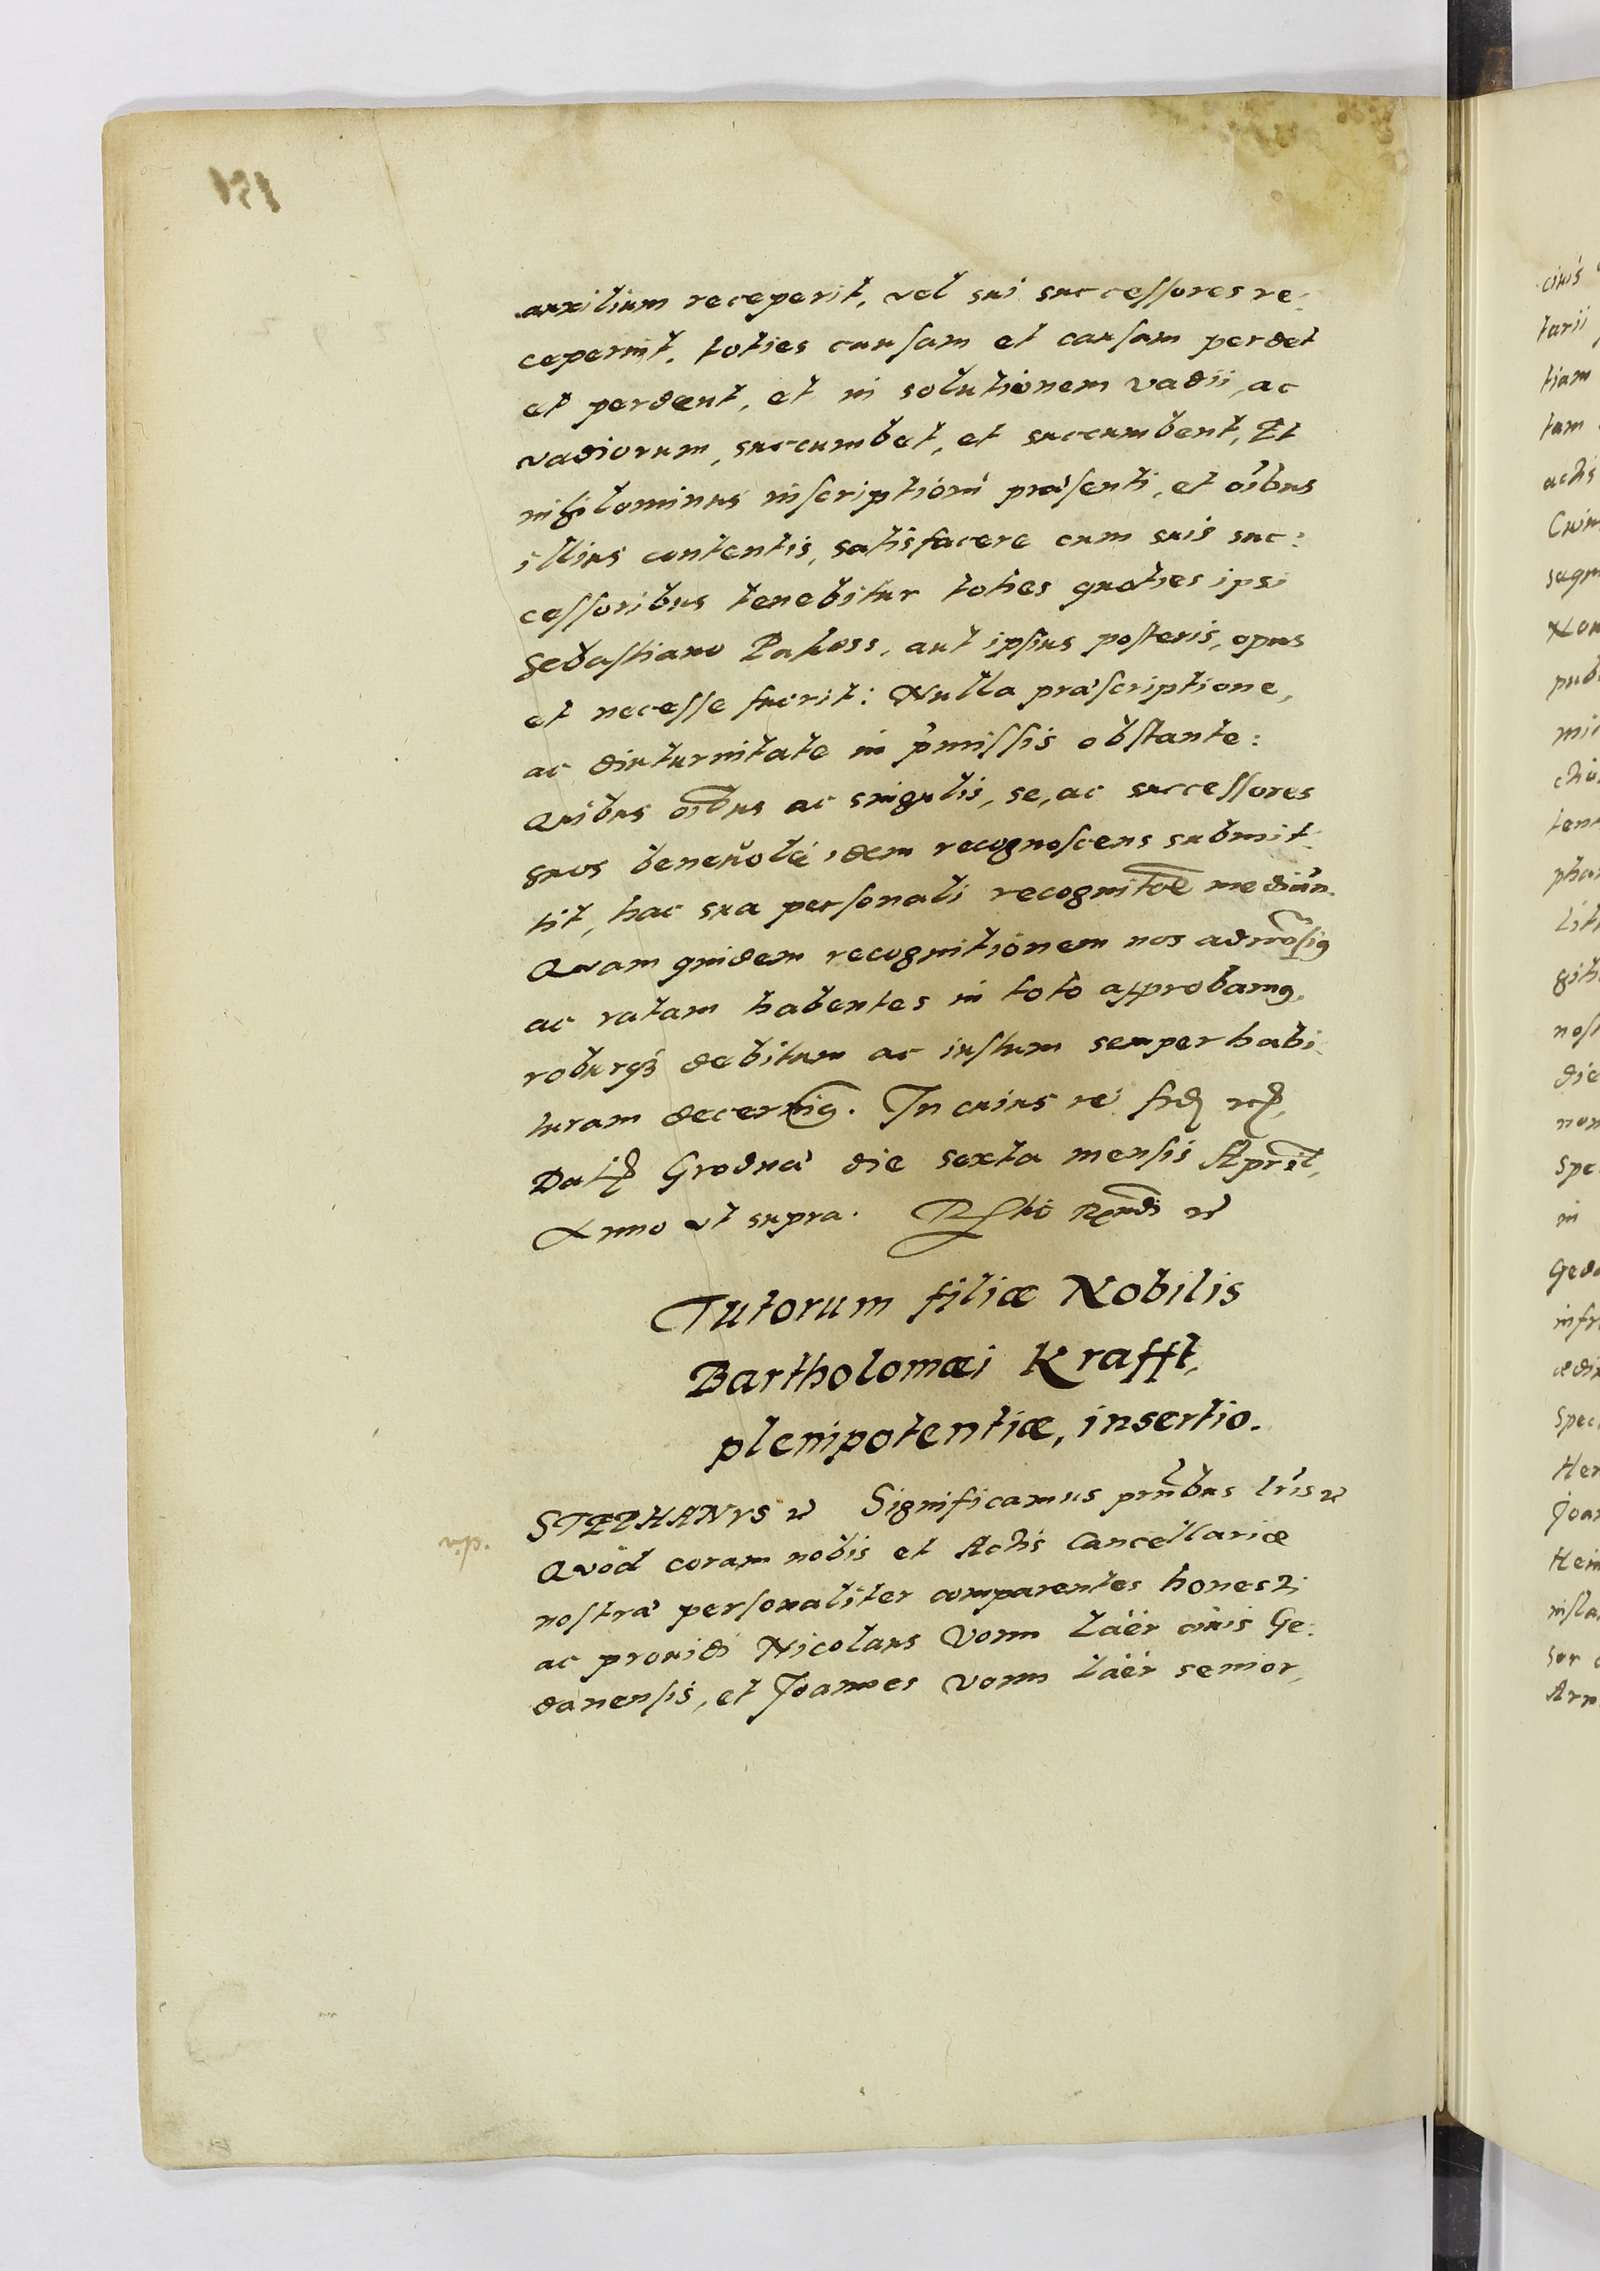 auxilium receperit, vel sui successores re:
ceperint, toties causam et causam perdet
et perdent, et in solutionem vadii, ac
vadiorum, succumbet, et succumbent, Et
nihilominus inscriptioni præsenti, et oîbus
illius contentis, satisfacere cum suis suc:
cessoribus tenebitur toties quoties ipsi
Sebastiano Pakoss, aut ipsius posteris, opus
et necesse fuerit: Nulla præscriptione,
ac diuturnitate in p̃missis obstante:
Quibus oîbus ac singulis, se, ac successores
suos beneuolè idem recognoscens submit:
tit, hac sua personali recognitõe mediãn.
Quam quidem recognitionem nos
ac ratam habentes in toto approbamꝰ,
roburqꝫ debitum ac iustum semper habi:
turam decernimꝰ. In cuius rei
Grodnæ die sexta mensis Aprîl,
Anno vt supra.
Tutorum filiæ Nobilis
Bartholomæi Krafft,
plenipotentiæ, insertio.
STEPHANVS Significamus prñtibus lr̃is
Quòd coram nobis et Actis Cancellariæ
nostræ personaliter comparentes honesti
ac prouidi Nicolaus Vonn Läer ciuis Ge:
danensis, et Joannes Vonn Läer senior,
151
cius
tarii
tiam
tum
actis